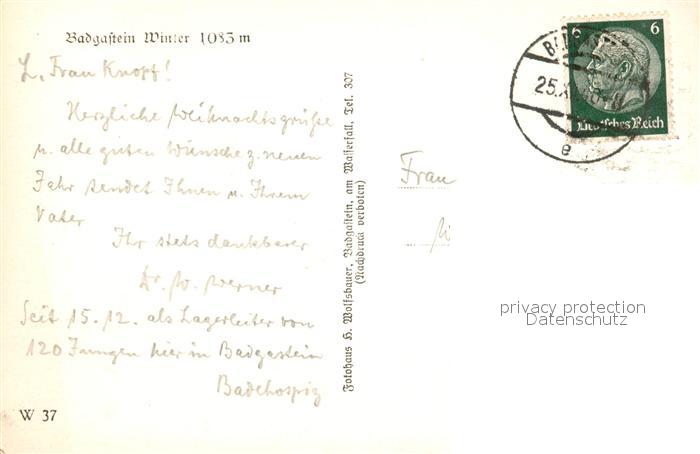 Badgastein Winter 1083 m
L. Frau Knopf!
Herzliche Weihnachtsgrüße
u. alle guten Wünsche z. neuen
Jahr sendet Ihnen u. Ihrem
Vater
Ihr stets dankbarer
Dr. W. Werner
Seit 15.12. als Lagerleiter von
120 Jungen hier in Badgastein
Badehospiz
W 37
Fotohaus H. Wolfsbauer, Badgastein, am Wasserfall, Tel. 307
(Nachdruck verboten)
6 6
Deutsches Reich
25.X
e
Frau
privacy protection
Datenschutz